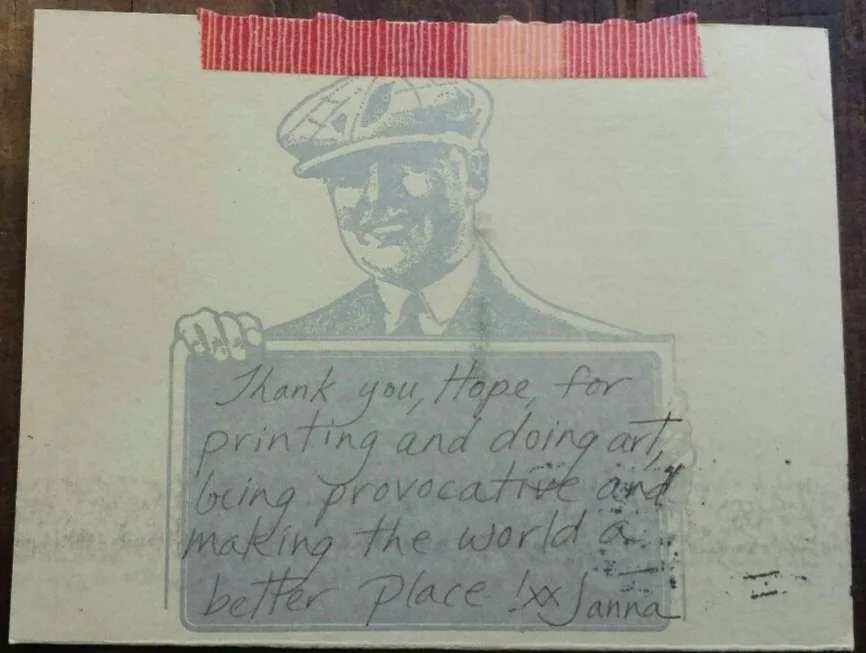 Thank you, Hope, for
printing and doing art,
being provocative and
making the world a
better place! xx Janna